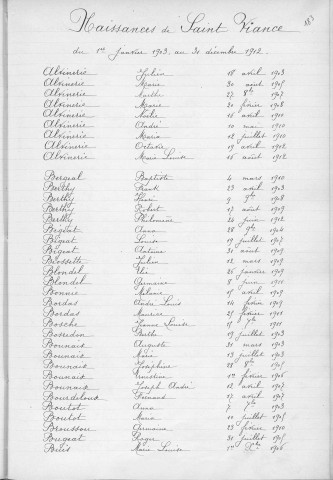 Naissances de Saint Viance
du 1er Janvier 1903 au 31 décembre 1912.
Alvinerie Julien 18 avril 1903
Alvinerie Marie 30 août 1905
Alvinerie Marthe 27 8bre 1907
Alvinerie Marie 21 février 1908
Alvinerie Noélie 16 avril 1910
Alvinerie André 10 mai 1910
Alvinerie Marie 12 juillet 1910
Alvinerie Octavie 19 avril 1912
Alvinerie Marie Louise 16 août 1912
Bergeal Baptiste 4 mars 1910
Berthy Frank 23 avril 1903
Berthy Henri 9 7bre 1908
Berthy Robert 17 août 1909
Berthy Philomène 24 juin 1912
Bigeat Anna 28 9bre 1904
Bigeat Louise 19 juillet 1907
Bigeat Antoine 31 août 1909
Julien 12 mars 1909
Blondel 26 janvier 1909
Blondel Germaine 8 juin 1911
Bonnie Mélanie 15 avril 1909
Bordas André Louis 14 février 1909
Bordas Maurice 25 février 1911
Bosche Jeanne Louise 1911
Bossedon Berthe 19 juillet 1903
Bounaix Auguste 31 mars 1903
Bounaix Marie 13 juillet 1903
Bounaix Joséphine 28 8bre 1905
Bounaix Ernestine 1er février 1906
Bounaix Joseph André 12 avril 1907
Bourdeloux Fernand 17 avril 1907
Boutot Anna 7 7bre 1903
Boutot Maria 10 juillet 1905
Broussou Germaine 23 février 1910
Bugeat Roger 31 juillet 1905
Buis Marie Louise 1er Xbre 1906